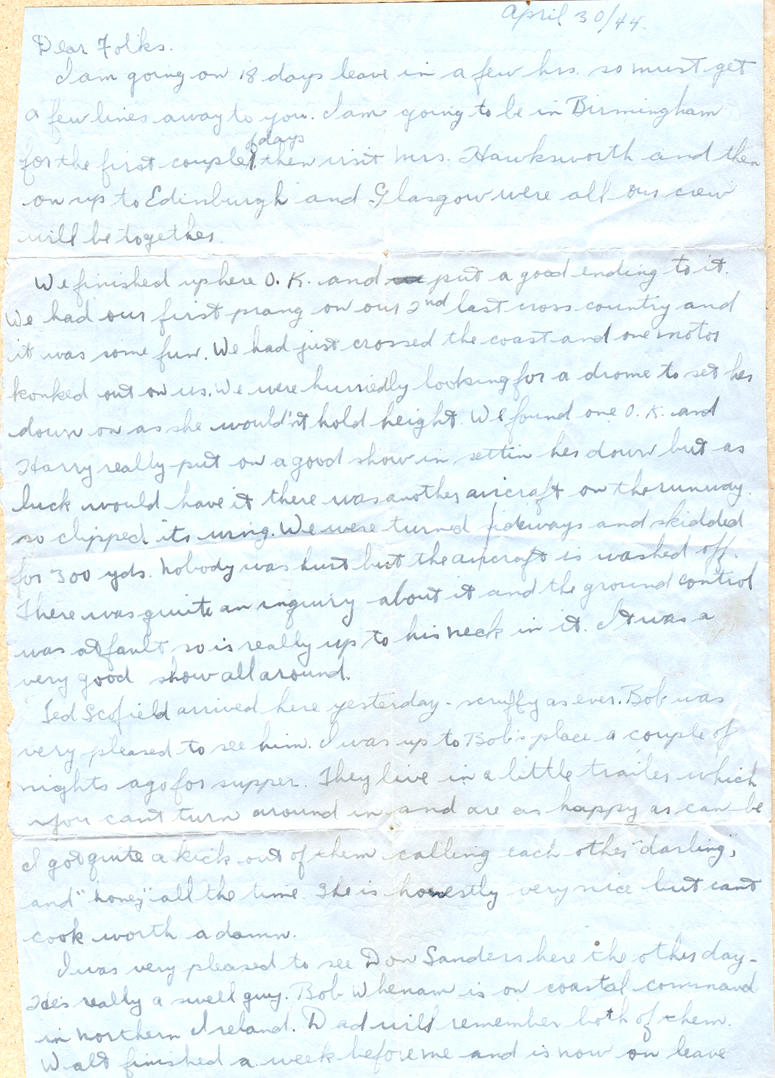 April 30/44.
Dear Folks.
I am going on 18 days leave in a few hrs. so must get
a few lines away to you. I am going to be in Birmingham
of days
for the first couple then visit Mrs. Hawksworth and then
on up to Edinburgh and Glasgow were all our crew
will be together.
We finished up here O.K. and put a good ending to it.
We had our first prang on our 2nd last cross country and
it was some fun. We had just crossed the coast and one motor
konked out on us. We were hurriedly looking for a drome to set her
down on as she would'nt hold height. We found one O.K. and
Harry really put on a good show in settin her down but as
luck would have it there was another aircraft on the runway.
so clipped its wing. We were turned sideways and skidded
for 300 yds. Nobody was hurt but the aircraft is washed off.
There was quite an inquiry about it and the ground control
was at fault so is really up to his neck in it. It was a
very good show all around.
Ted Scofield arrived here yesterday - scruffy as ever. Bob was
very pleased to see him. I was up to Bob's place a couple of
nights ago for supper. They live in a little trailer which
you can't turn around in and are as happy as can be
I got quite a kick out of them calling each other "darling",
and "honey" all the time. She is honestly very nice but can't
cook worth a damn.
I was very pleased to see Don Sanders here the other day -
He's really a swell guy. Bob Whenam is on coastal command
in northern Ireland. Dad will remember both of them.
Walt finished a week before me and is now on leave